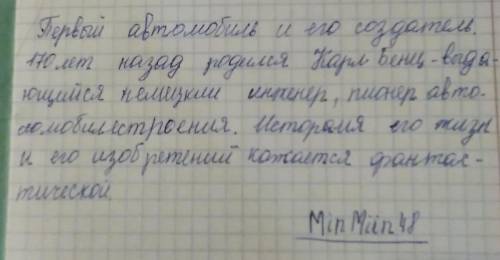 Первый автомобиль и его создатель.
170 лет назад родился Карл Бенц - выда-
ющийся немицкии инженер, пионер авто-
момобилестроения. Историмя его жизн
и его изобретений кажается фантас-
тической.
Min Miin 48